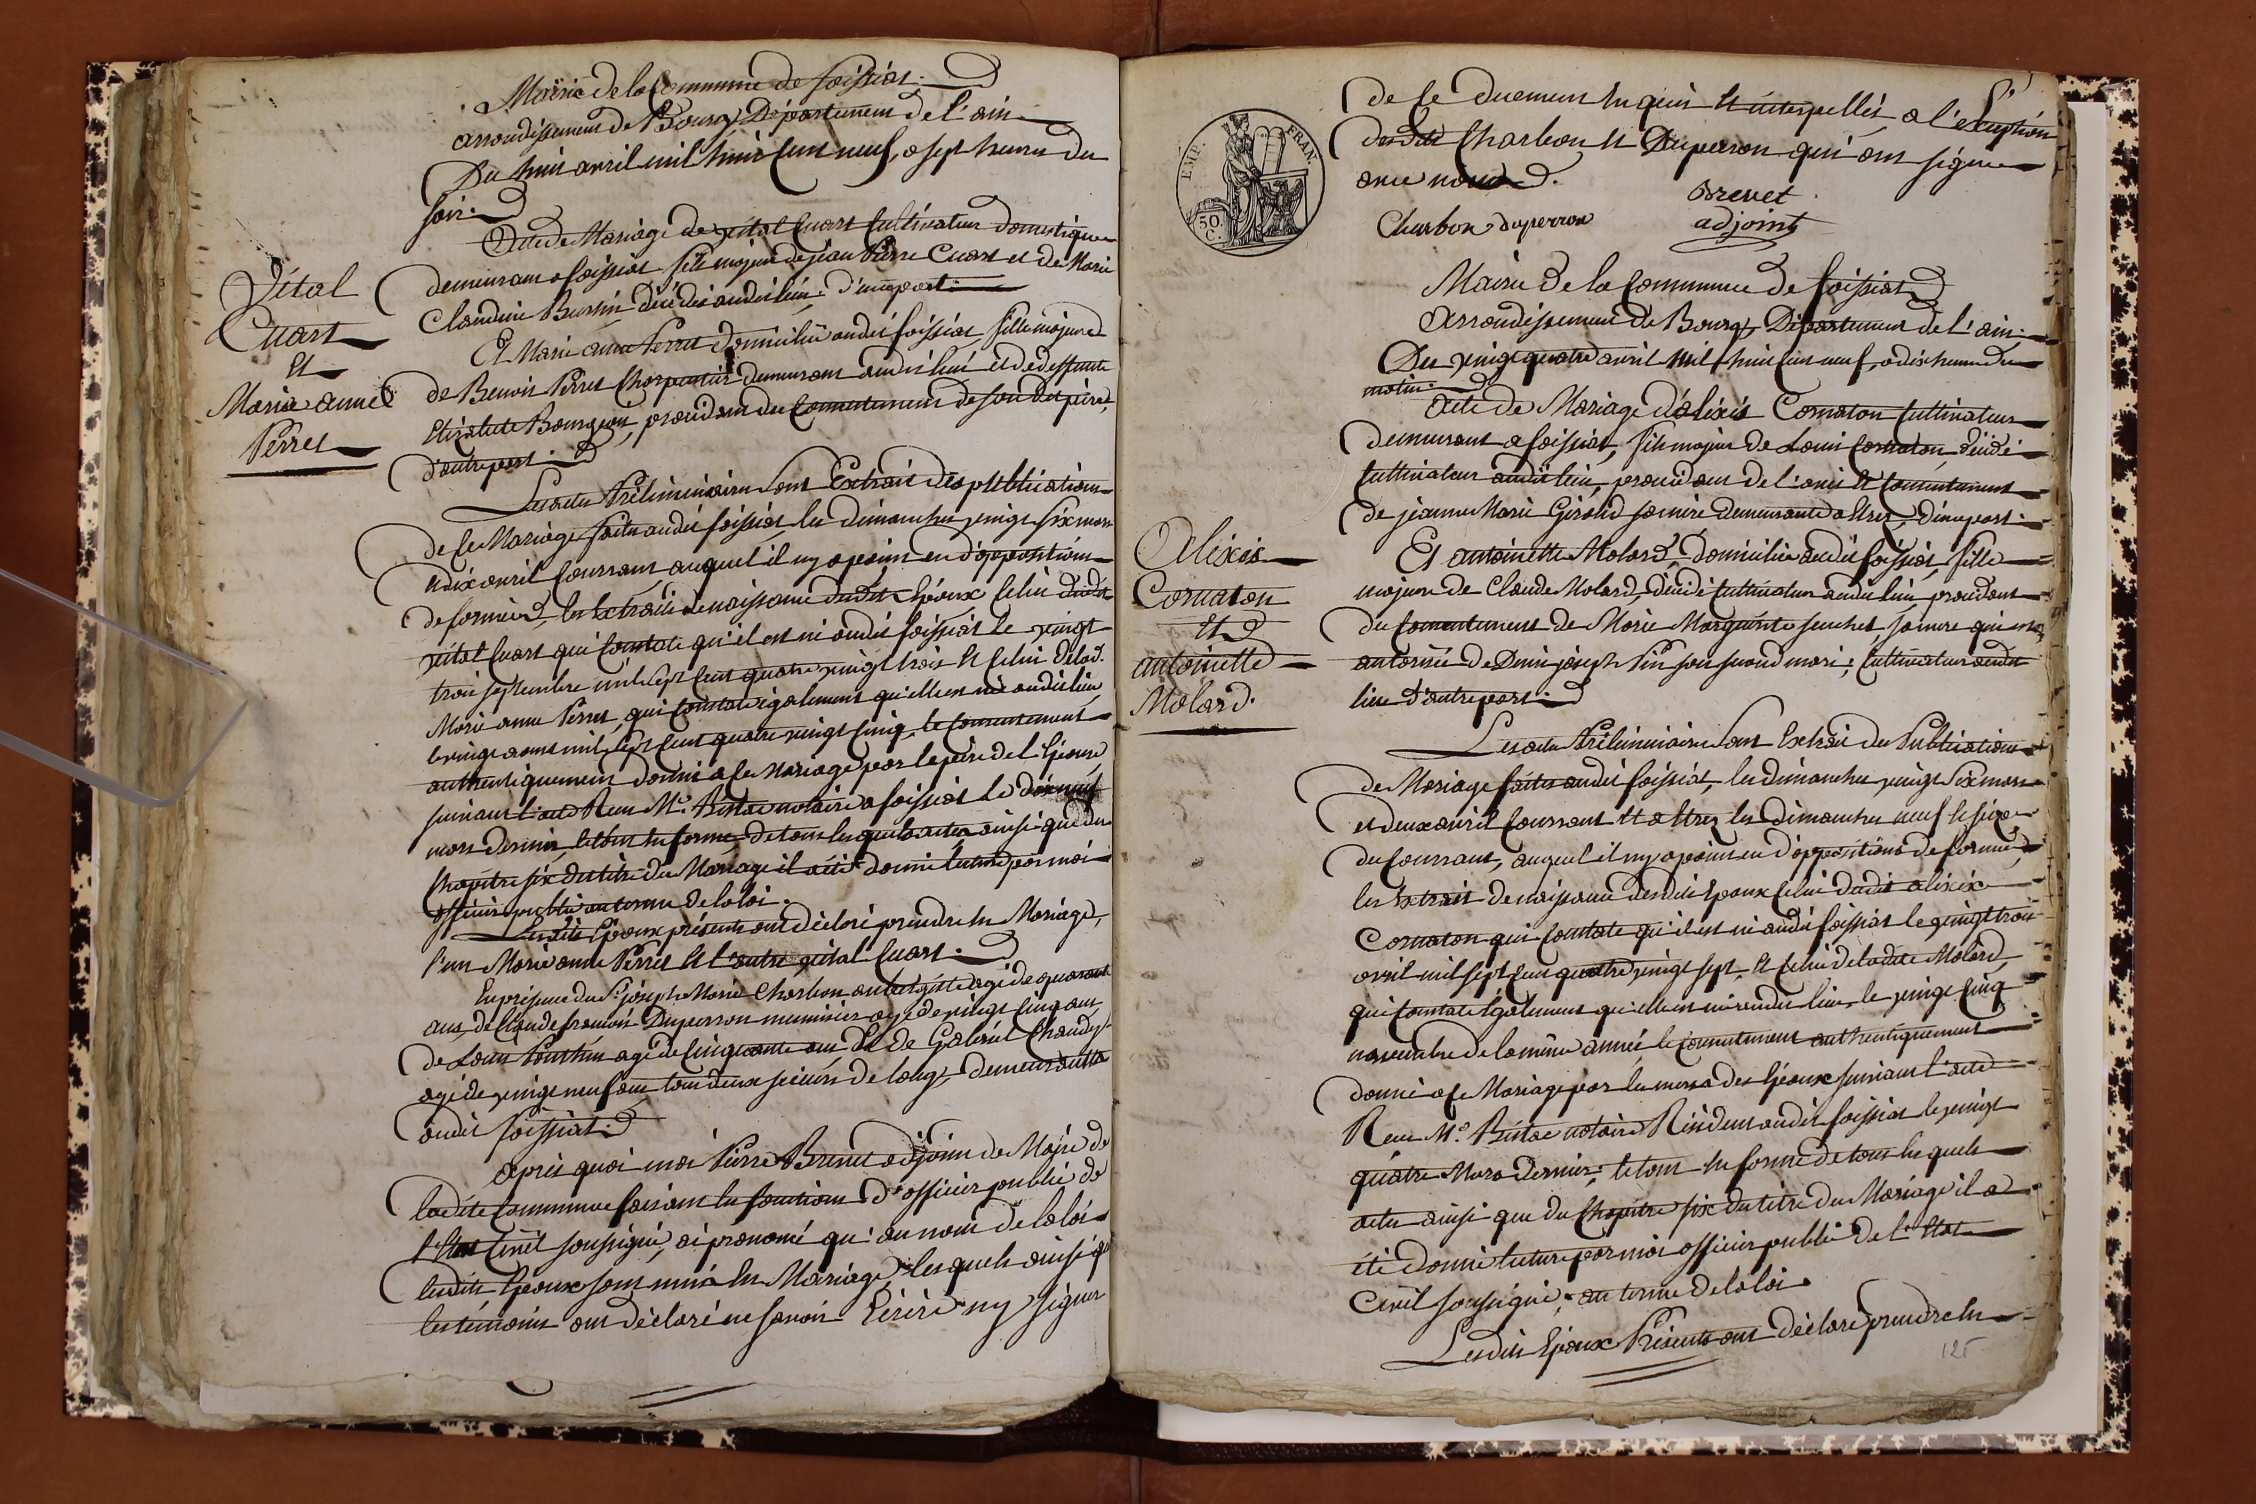 Mairie de la Commune de foissiat.
arrondissement de Bourg Département de l'ain
Du huit avril mil huit Cent neuf, a sept heures du
soir.
Acte de Mariage de vital Cuart Cultivateur domestique
demeurant a foissiat fils majeur de jean Pierre Cuart et de Marie
Claudine Burtin décédés audit lieu. d'une part.
Et Marie anne Perret domiciliée audit foissiat, fille majeure
de Benoit Perret Charpentier demeurant audit lieu et de deffunte
Elizabete Bourgeon, procedant du Consentement de son dit père,
d'autre part.
Vital
Cuart
Et
Marie anne
Perret
Les actes Préliminaires sont Extrait des publications
de ce Mariage faites audit foissiat les dimanches vingt six mars
et dix avril Courrant auquel il ny a point eu d'oppositions
de formées, les Extraits de naissance desdits Epoux Celui dudit
vital Cuart qui Constate qu'il est né audit foissiat le vingt
trois septembre mil sept Cent quatre vingt trois Et Celui de lad.
Marie anne Perret, qui Constate également qu'elle est née audit lieu
le vingt aout mil sept Cent quatre vingt Cinq, le Consentement
authentiquement donné a ce Mariage par le père de l'Epouse
suivant l'acte Reçu Me. notaire a foissiat le dixneuf
mars dernier, le tout en forme de tous lesquels actes ainsi que du
Chapitre six du titre du Mariage il a été donné lecture par moi
officier public au terme de la loi.
Lesdits Epoux présents ont déclaré prendre en Mariage,
l'un Marie anne Perret Et l'autre vital Cuart.
En présence du Sr. joseph Marie Charbon aubergiste agé de quarante
ans, de Claude françois Duperron menuisier agé de vingt Cinq ans
de Louis agé de Cinquante ans Et de Gabriel Chaudy
agé de vingt neuf ans tous deux scieurs de long, demeurants
audit foissiat.
après quoi moi Pierre Brevet adjoint de Maire de
ladite Commune faisant les fonctions d'officier public de
l'Etat Civil soussigné, ai prononcé qu'au nom de la loi
lesdits Epoux sont unis en Mariage, lesquels ainsi que
les témoins ont déclaré ne savoir Ecrire ny signer
de ce duement enquis Et interpellés a l'exception
desdits Charbon Et Duperron qui ont signé
avec nous.
EMP. FRAN.
50.
C.
Charbon duperron
Brevet
adjoint
Mairie de la Commune de foissiat
Arrondissement de Bourg, Département de l'ain.
Du vingt quatre avril mil huit Cent neuf, a dix heures du
matin.
Acte de Mariage d'alexis Cornaton Cultivateur
demeurant a foissiat, fils majeur de Louis Cornaton, décédé
Cultivateur audit lieu, procédant de l'avis Et Consentement
de jeanne Marie Giroud sa mère demeurante a Etrez, d'une part.
Et antoinette Molard, domiciliée audit foissiat, fille
majeure de Claude Molard, décédé Cultivateur audit lieu procédant
du Consentement de Marie Marguerite sa mere qui est
autorisée de Denis joseph son second mari, Cultivateur audit
lieu d'autre part.
Alexis
Cornaton
Et
antoinette
Molard.
Les actes Préliminaires sont Extrait des Publications
de Mariage faites audit foissiat, les dimanches vingt six mars
et deux avril Courrant Et a Etrez les dimanches neuf Et seize
du Courrant, auquel il ny a point eu d'oppositions de formées,
les Extrait de naissance desdits Epoux Celui dudit alexis
Cornaton qui Constate qu'il est né audit foissiat le vingt trois
avril mil sept Cent quatre vingt sept, Et Celui de ladite Molard,
qui Constate également qu'elle est née audit lieu, le vingt Cinq
novembre de la même année, le Consentement authentiquement
donné a ce Mariage par les meres des Epoux suivant l'acte
Reçu Me. notaire Résident audit foissiat le vingt
quatre Mars dernier, le tout en forme de tous lesquels
actes ainsi que du Chapitre six du titre du Mariage il a
été donné lecture par moi officier public de l'Etat
Civil soussigné, au terme de la loi.
Lesdits Epoux Présents ont déclaré prendre en
125